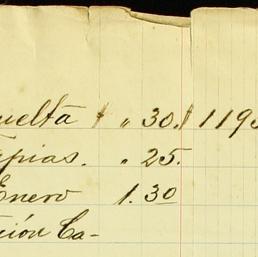 uelta $ " 30. $ 119
apias. " 25.
Enero 1.30
ción Ca-